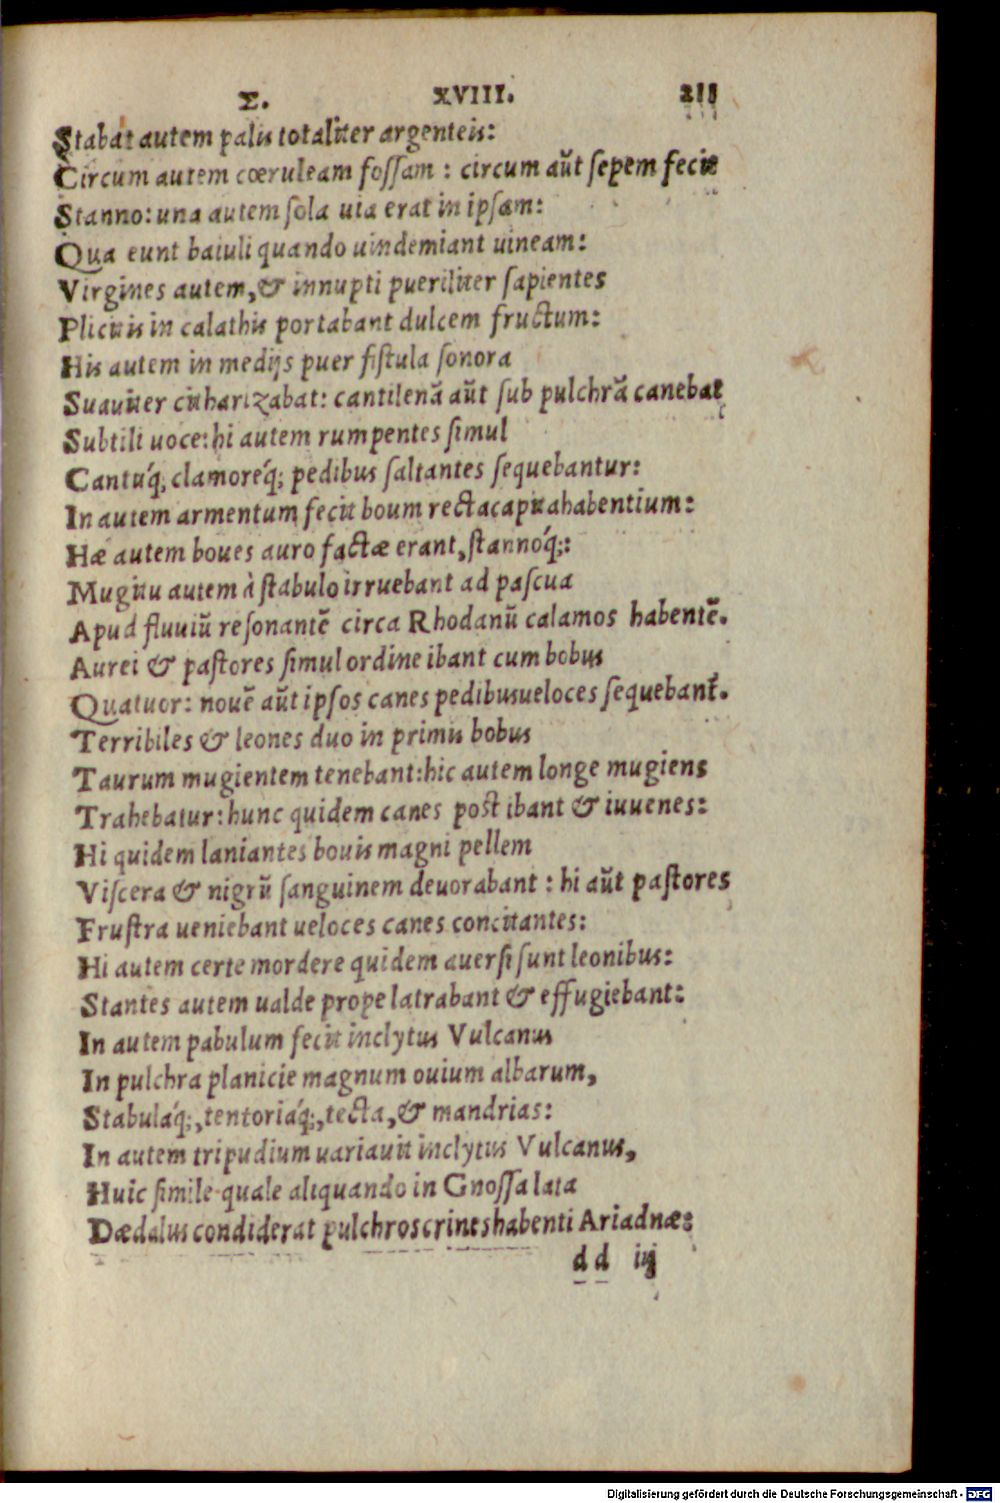 Σ. XVIII. 211
Stabat autem palis totaliter argenteis:
Circum autem cœruleam fossam : circum aũt sepem fecit
Stanno: una autem sola uia erat in ipsam:
Qua eunt baiuli quando uindemiant uineam:
Virgines autem, & innupti pueriliter sapientes
Plicitis in calathis portabant dulcem fructum:
His autem in medijs puer fistula sonora
Suauiter citharizabat: cantilenã aũt sub pulchrã canebat
Subtili uoce: hi autem rumpentes simul
Cantuq́;, clamoreq́; pedibus saltantes sequebantur:
In autem armentum fecit boum recta capita habentium:
Hæ autem boues auro factæ erant, stannoq́;:
Mugitu autem à stabulo irruebant ad pascua
Apud fluuiũ resonantẽ circa Rhodanũ calamos habentẽ.
Aurei & pastores simul ordine ibant cum bobus
Quatuor: nouẽ aũt ipsos canes pedibus ueloces sequebant̃.
Terribiles & leones duo in primis bobus
Taurum mugientem tenebant: hic autem longe mugiens
Trahebatur: hunc quidem canes post ibant & iuuenes:
Hi quidem laniantes bouis magni pellem
Viscera & nigrũ sanguinem deuorabant : hi aũt pastores
Frustra ueniebant ueloces canes concitantes:
Hi autem certe mordere quidem auersi sunt leonibus:
Stantes autem ualde prope latrabant & effugiebant:
In autem pabulum fecit inclytus Vulcanus
In pulchra planicie magnum ouium albarum,
Stabulaq́;, tentoriaq́;, tecta, & mandrias:
In autem tripudium uariauit inclytus Vulcanus,
Huic simile quale aliquando in Gnossa lata
Dædalus condiderat pulchros crines habenti Ariadnæ:
dd iij
Digitalisierung gefördert durch die Deutsche Forschungsgemeinschaft - DFG